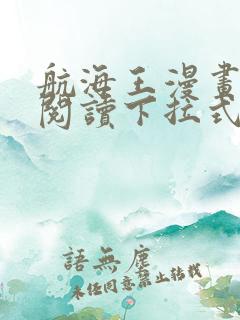 航海王漫畫
閱讀下拉式
語無塵
未經同意禁止轉載